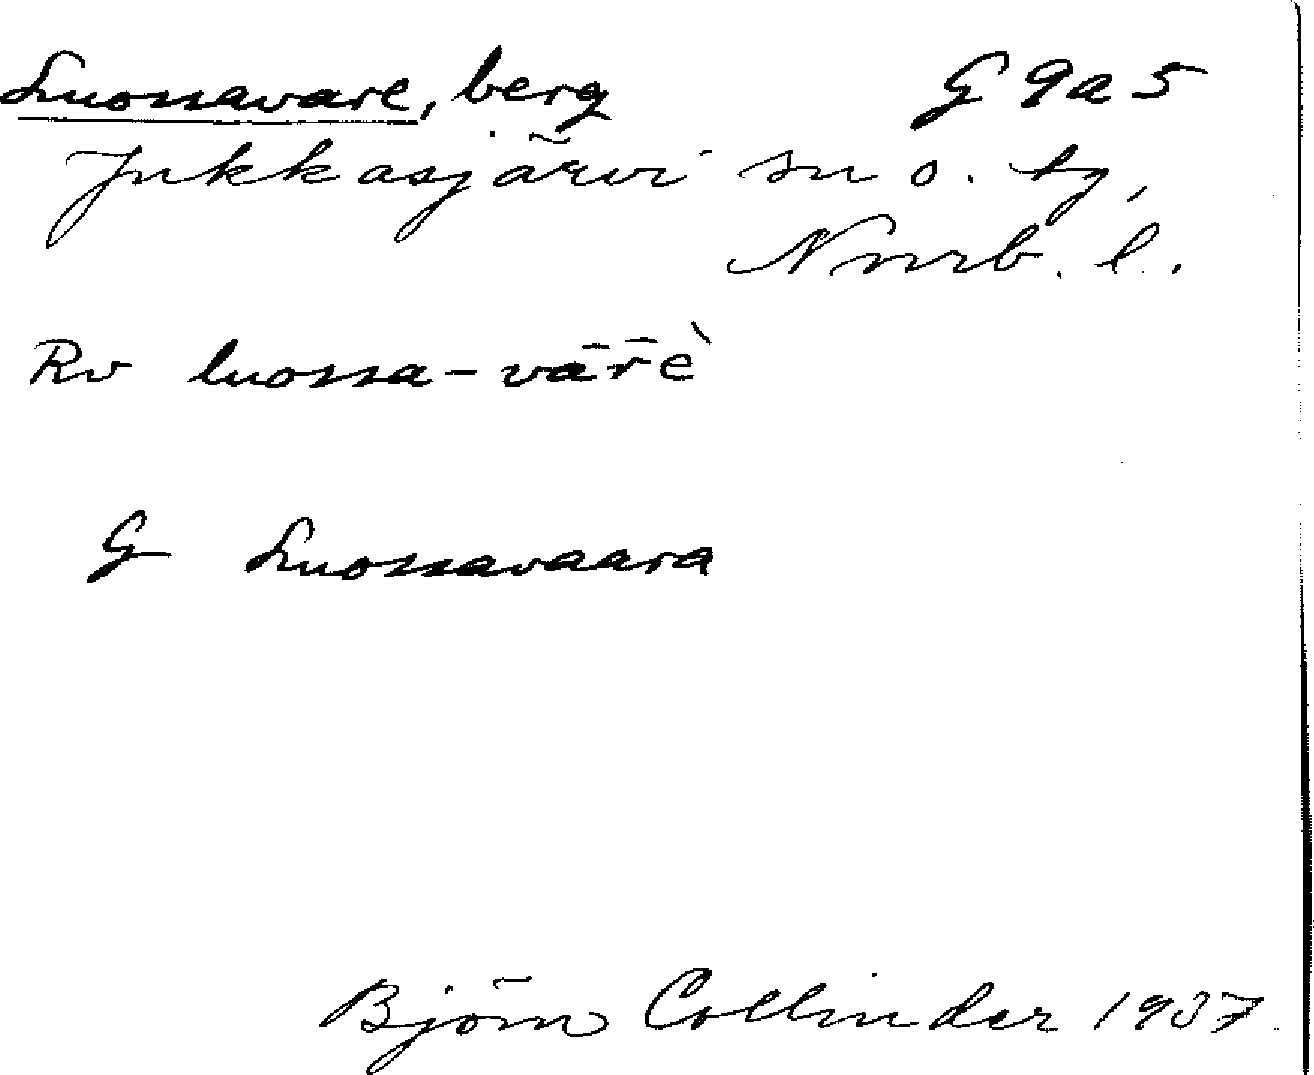 Luossavare, berg G 9a5
Jukkasjärvi sn o. tg,
Norrb. l.
Rv luossa-vārḕ
G Luossavaara
Björn Collinder 1937